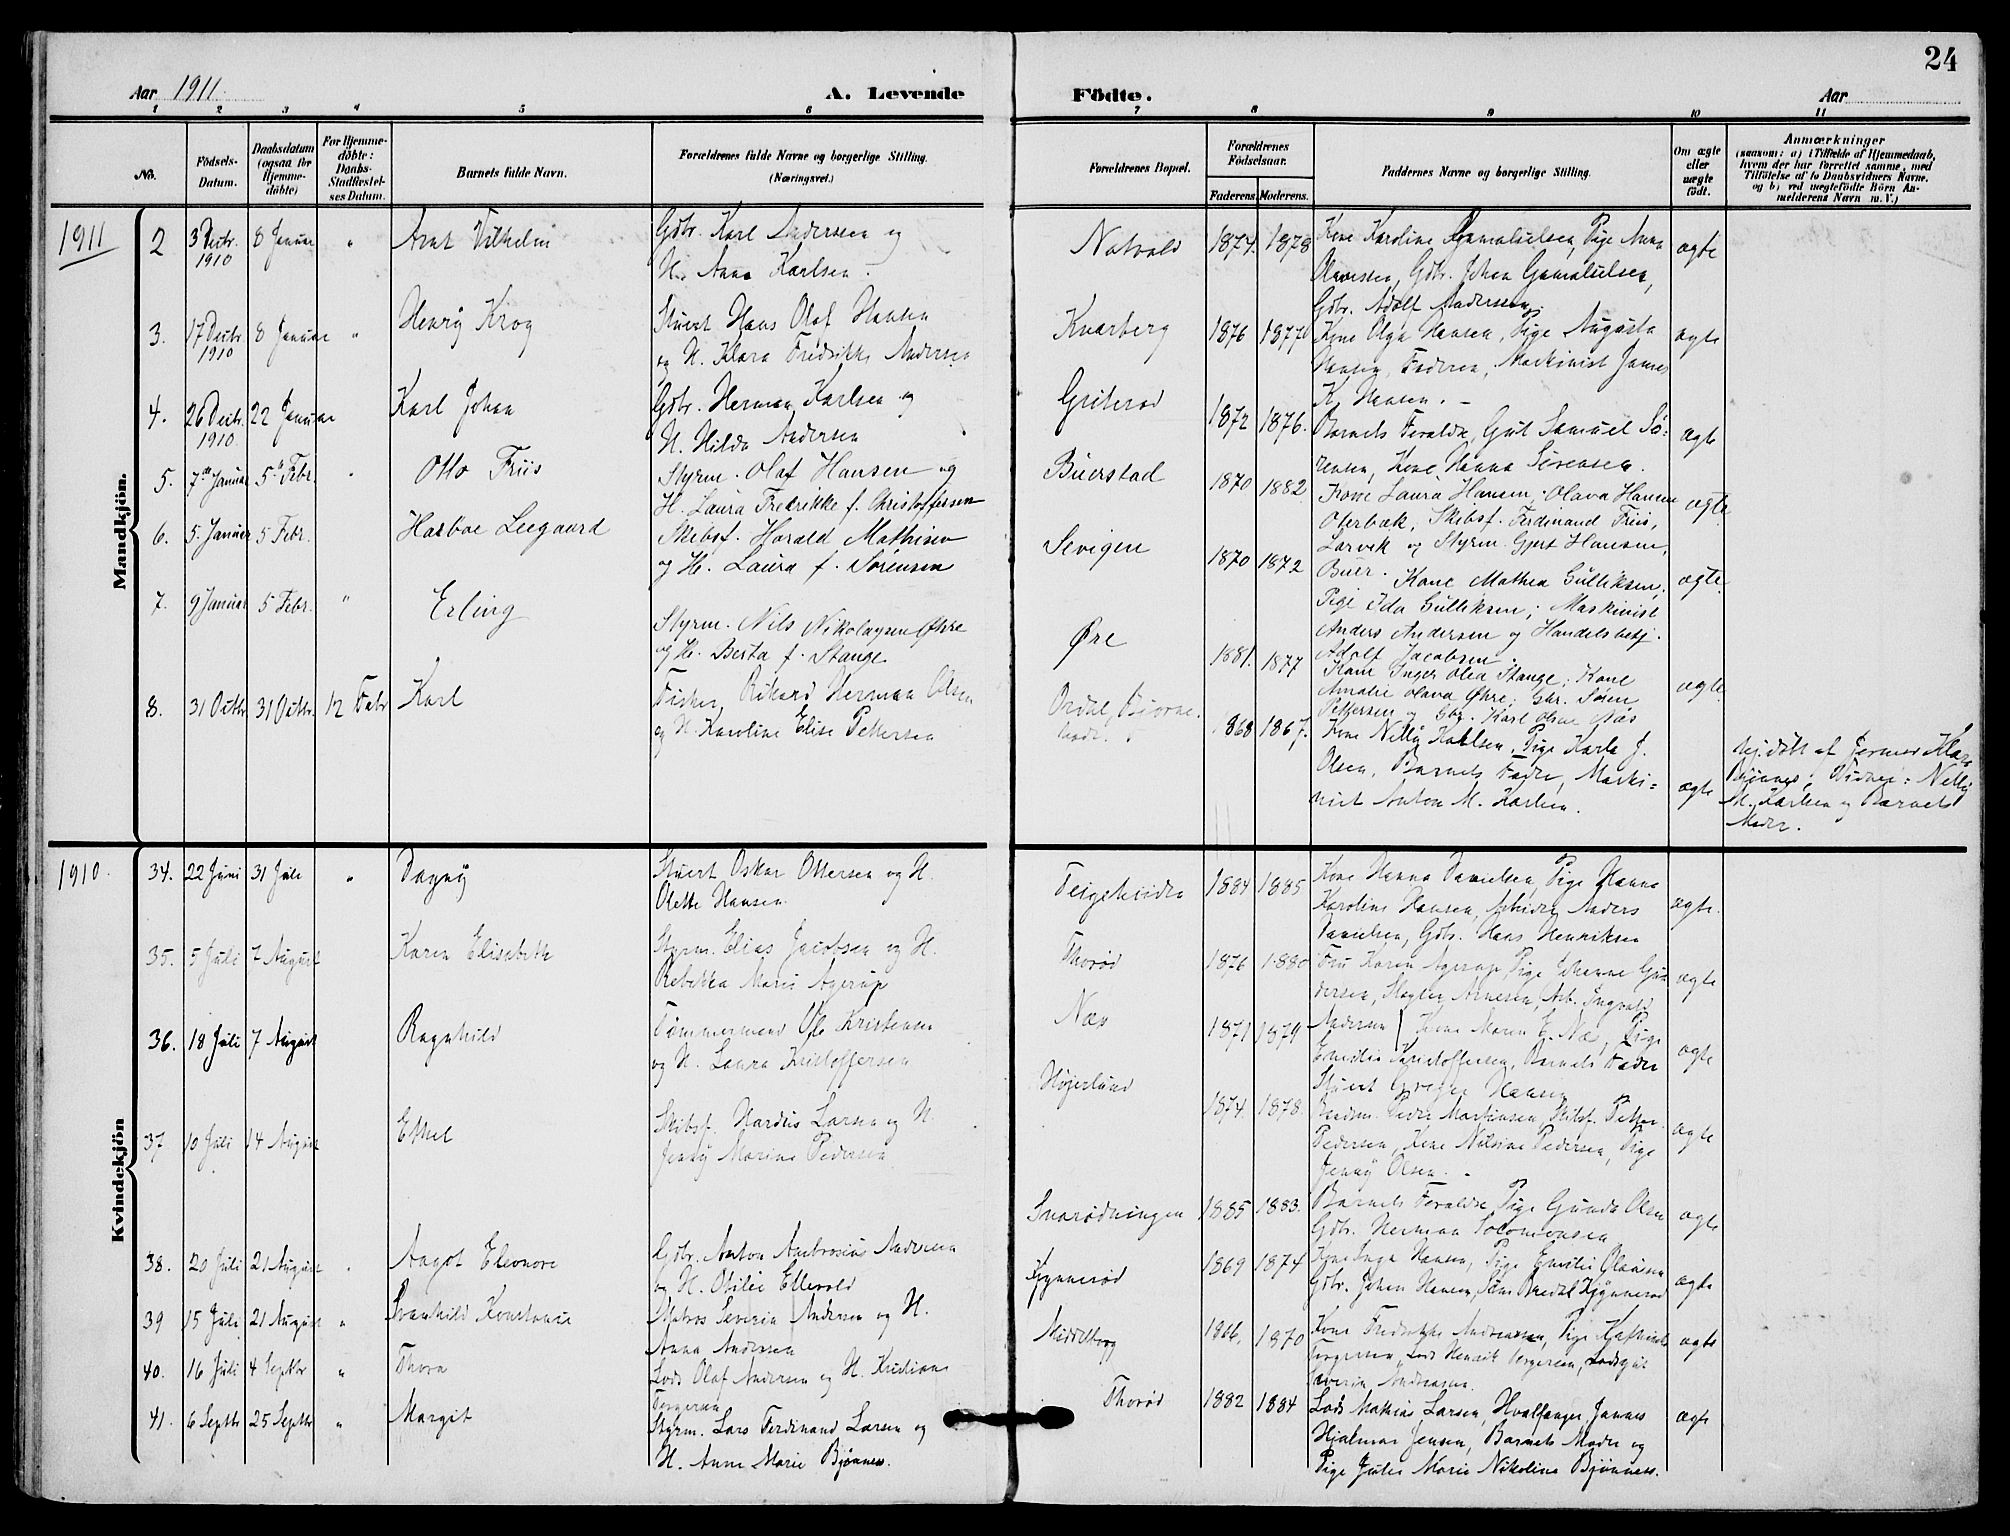 24
Aar 1911
A. Levende
Födte.
Aar
1 2 3 4 5 6 7 8 9 10 11
No.
Födsels-Datum.
Daabsdatum (ogsaa for Hjemme-döbte)
For Hjemme-döbte: Daabs-Stadfæstel-ses Datum.
Barnets fulde Navn.
Forældrenes fulde Navne og borgerlige Stilling.
(Næringsvei.)
Forældrenes Bopæl.
Forældrenes Födselsaar.
Faderens. Moderens.
Faddernes Navne og borgerlige Stilling.
Om ægte eller uægte födt.
Anmærkninger
(saasom: a) i Tilfælde af Hjemmedaab,
hvem der har forrettet samme, med
Tilföielse af to Daabsvidners Navne.
og b) ved uægtefödte Börn An-
melderens Navn m. V.)
Mandkjön.
1911
2 3 Decbr. 1910 8 Januar " Arnt Vilhelm
Gbr. Karl Andersen og
H. Anna Karlsen.
Natvald 1874. 1878
Kone Karoline Gamalielsen, Pige Anna
Olavesen, Gbr. Johan Gamalielsen,
Gbr. Adolf Andersen
ægte
3. 17 Decbr. 1910 8 Januar " Henry Krog
Stuert Hans Olaf Hansen
og H. Klara Fredrikke Andersen
Kvarberg 1876 1877
Kone Olga Hansen, Pige Augusta
Hansen, Faderen, Maskinist James
K. Hansen. -
ægte
4. 26 Decbr. 1910. 22 Januar Karl Johan
Gbr. Herman Karlsen og
H. Hilda Andersen
Griterød 1872 1876.
Barnets Foreldre, Gut Samuel Sø=
rensen, Kone Hanna Sørensen.
ægte
5. 7de Januar 5 Febr. " Otto Friis
Styrm. Olaf Hansen og
H. Laura Fredrikke f. Christoffersen
Buerstad 1870 1882
Kone Laura Hansen, Olava Hansen
Oterbæk, Skibsf. Ferdinand Friis,
Larvik og Styrm. Gjert Hansen,
Buer.
ægte.
6. 5 Januar 5 Febr. Harboe Leegaard
Skibsf. Harald Mathisen
og H. Laura f. Sørensen
Sevigen 1870 1872
Kone Mathea Gulliksen,
Pige Ida Gulliksen; Maskinist
Anders Andersen og Handelsbestj.
Adolf Jacobsen.
ægte.
7. 9 Januar 5 Febr. " Erling
Styrm. Nils Nikolaysen Øhre
og H. Berta f. Stange.
Øre 1881. 1877
Kone Inger Olea Stange; Kone
Amalie Olava Øhre; Gbr. Søren
Pettersen og Gbr. Karl Olsen Næs
ægte
8. 31 Octbr 31 Octbr. 12 Febr Karl
Fisker Rikard Herman Olsen
og H. Karoline Elise Pettersen
1868 1867.
Kone Nelly Karlsen, Pige Karla J.
Olsen, Barnets Fader, Maski=
nist Anton M. Karlsen.
ægte
Hj. døbt af Jormor Klara
Bjønnes; Vidner: Nelly
M. Karlsen og Barnets
Moder.
Kvindekjön
1910.
34. 22 Juni 31 Juli " Dagny
Stuert Oskar Ottersen og H.
Olette Hansen
1884 1885
Kone Hanna Danielsen, Pige Hanna
Karoline Hansen, Arbeider Anders
Danielsen, Gbr. Hans Henriksen
ægte.
35. 5 Juli 7 August Karen Elisabeth
Styrm. Elias Jacobsen og H.
Rebekka Marie Agerup
Thorød 1876 1880
Fru Karen Agerup, Pige Johanne Gun
dersen, Slagter Arnesen, Arb. Ingvald
Andersen
ægte
36. 18 Juli 7 August Ragnhild
Tømmermand Ole Kristensen
og H. Laura Kristoffersen
Næs 1871 1879
Kone Maren E. Næs, Pige
Emilie Kristoffersen, Barnets Fader
Stuert Hansen
ægte
37 10 Juli 14 August Ethel
Skibsf. Hardus Larsen og H.
Jenny Marine Pedersen
Højerlund 1874. 1878.
Martinsen, Skibsf. Petter
Pedersen, Kone Nilsine Pedersen, Pige
Jenny Olsen. -
ægte
38. 20 Juli 21 August " Aagot Eleonore
Gbr. Anton Ambrosius Andersen
og H. Otilie Ellevold
Snarødningen 1885 1883.
Barnets Foreldre, Pige Gunda Olsen
Gbr. Herman Solomonsen
ægte
39 15 Juli 21 August " Svanhild Konstanse
Matros Severin Andersen og H.
Anna Andersen
Gjønnerød 1869 1874
Kone Inga Hansen, Pige Emilie Olausen
Gbr. Johan Hansen, Bredal Kjønnerød
ægte
40. 16 Juli 4 Septbr " Thora
Lods Olaf Andersen og H. Kristiane
Torgersen
Middelborg 1866. 1870
Kone Fredrikke Andreassen, Pige Kathinka
Torgersen, Lods Henrik Torgersen, Lodsgut
Severin Andreasen.
ægte
41. 6 Septbr 25 Septbr " Margit
Styrm. Lars Ferdinand Larsen og
H. Anne Marie Bjønnes.
Thorød 1882 1884
Lods Mathias Larsen, Hvalfanger Jannes
Hjalmar Jensen, Barnets Moder og
Pige Julie Marie Nikoline Bjønnes.
ægte